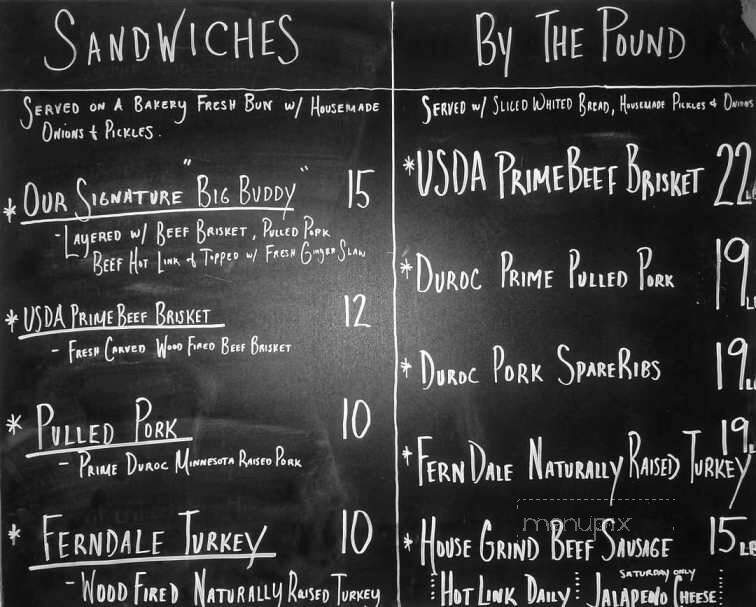 SANDWICHES
SERVED ON A BAKERY FRESH BUN W/ HOUSEMADE
ONIONS & PICKLES.
* OUR SIGNATURE "BIG BUDDY" 15
- LAYERED W/ BEEF BRISKET, PULLED PORK
BEEF HOT LINK & TOPPED W/ FRESH GINGER SLAW
* USDA PRIME BEEF BRISKET 12
- FRESH CARVED WOOD FIRED BEEF BRISKET
* PULLED PORK 10
- PRIME DUROC MINNESOTA RAISED PORK
* FERNDALE TURKEY 10
- WOOD FIRED NATURALLY RAISED TURKEY
BY THE POUND
SERVED W/ SLICED WHITED BREAD, HOUSEMADE PICKLES & ONIONS
* USDA PRIME BEEF BRISKET 22 L
* DUROC PRIME PULLED PORK 19 L
* DUROC PORK SPARERIBS 19 L
* FERN DALE NATURALLY RAISED TURKEY 19
* HOUSE GRIND BEEF SAUSAGE 15 LB
SATURDAY ONLY
HOT LINK DAILY JALAPENO CHEESE
menupix